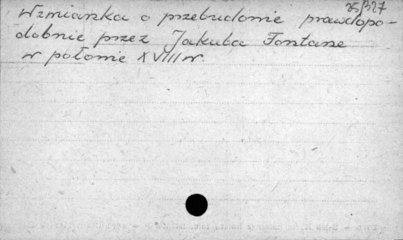 35/327
Wzmianka o przebudowie prawdopo-
dobnie przez Jakuba Fontanę
w połowie XVIII w.